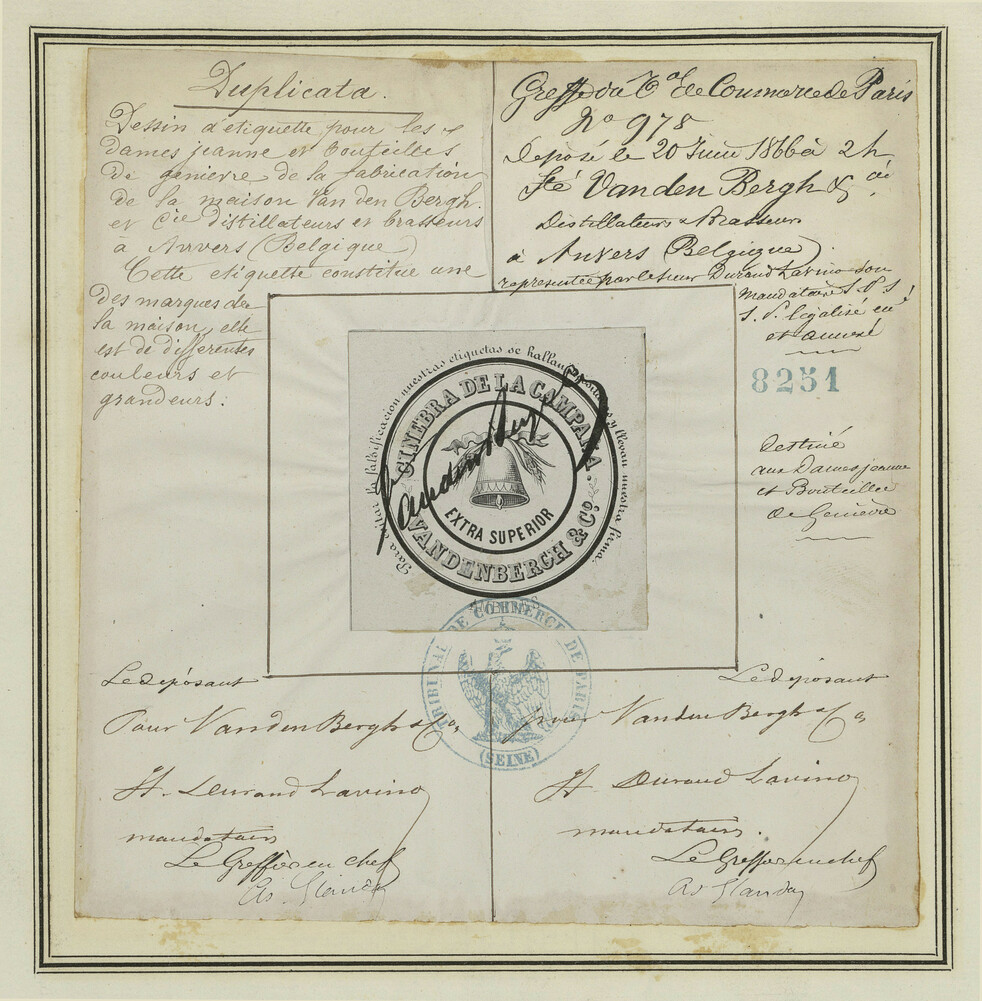 Duplicata.
Dessin d'etiquette pour les
dames jeanne et Bouteilles
de genievre de la fabrication
de la maison Van den Bergh.
et Cie distillateurs et brasseurs
à Anvers (Belgique)
Cette etiquette constitue une
des marques de
la maison, elle
est de differentes
couleurs et
grandeurs.
Greffe du Tal de Commerce de Paris
No 978
Déposé le 20 Juin 1866 à 2h
Sté Vanden Bergh & Cie
Distillateurs & Brasseurs
à Anvers (Belgique)
représentée par le sieur Durand Lavino son
mandataire S. P. S
S. P. légalisé en
et annexé
8251
Destiné
aux Dames jeanne
et Bouteilles
de Genièvre
Para evitar la falsificacion nuestras etiquetas se hallan y llevan nuestra firma.
GINEBRA DE LA CAMPANA.
EXTRA SUPERIOR
VANDENBERGH & Co.
TRIBUNAL DE COMMERCE DE PARIS
(SEINE)
Le déposant
Pour Vanden Bergh & Co
H. Durand Lavino
mandataire
Le Greffier en chef
Le déposant
Pour Vanden Bergh & Co
H. Durand Lavino
mandataire.
Le Greffier en chef